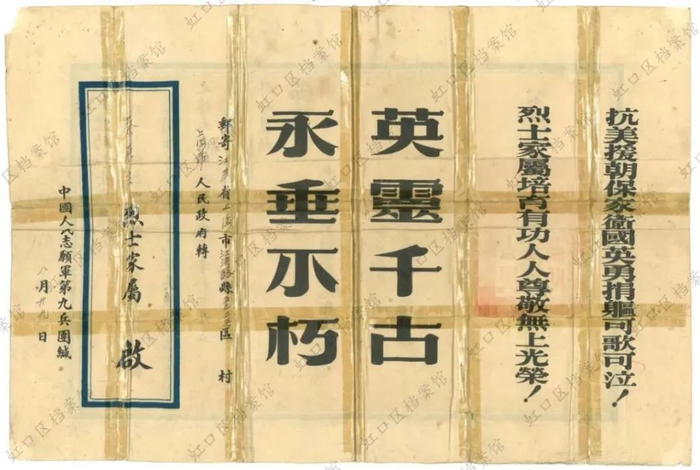 抗美援朝保家衛國英勇捐軀可歌可泣！
烈士家屬培育有功人人尊敬無上光榮！
英靈千古
永垂不朽
郵寄 省 市 縣 區 村
人民政府轉
烈士家屬 啟
中國人民志願軍第九兵團緘
月 日
虹口区档案馆